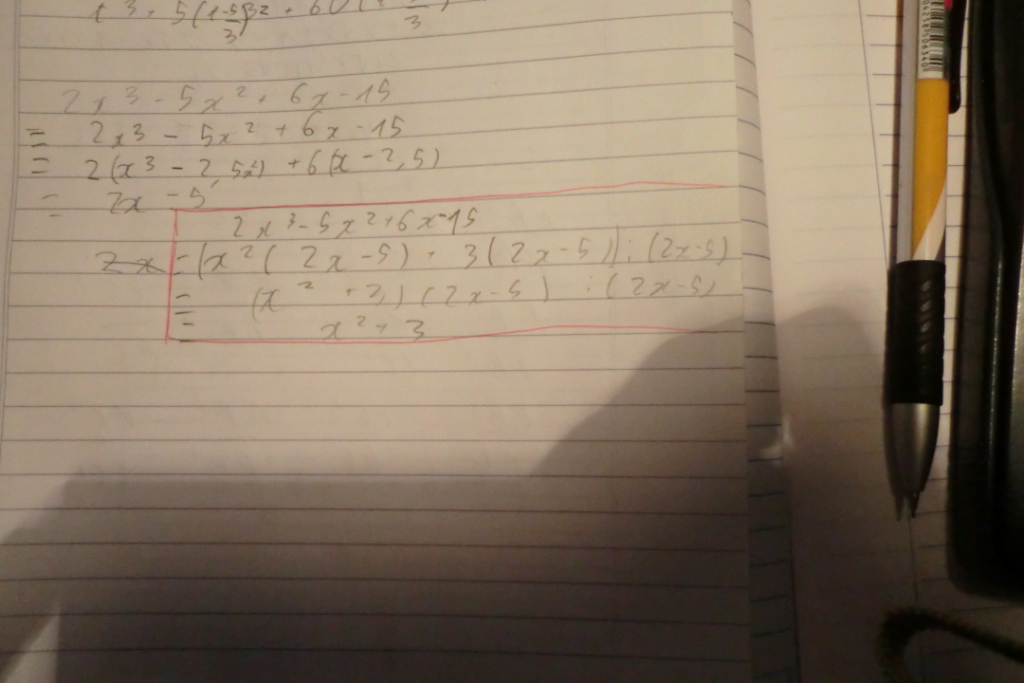 2x³ - 5x² + 6x - 15
= 2x³ - 5x² + 6x - 15
= 2(x³ - 2,5x²) + 6(x - 2,5)
= 2x - 5
2x³ - 5x² + 6x - 15
2x = (x²(2x - 5) + 3(2x - 5)) : (2x - 5)
= (x² + 3)(2x - 5) : (2x - 5)
= x² + 3